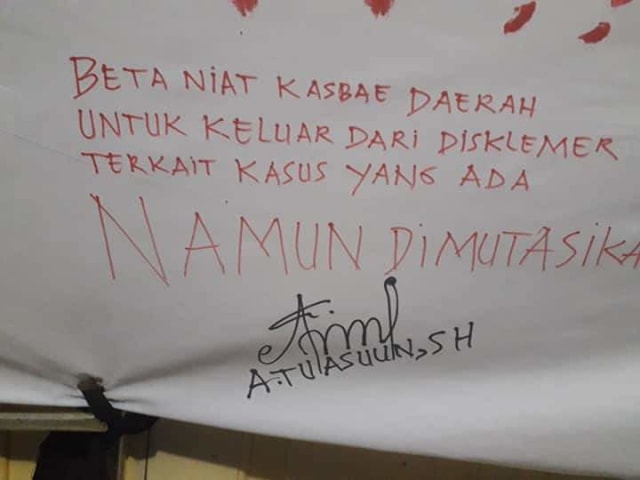 BETA NIAT KASBAE DAERAH
UNTUK KELUAR DARI DISKLEMER
TERKAIT KASUS YANG ADA
NAMUN DIMUTASIKA
A.TULASUUN,SH